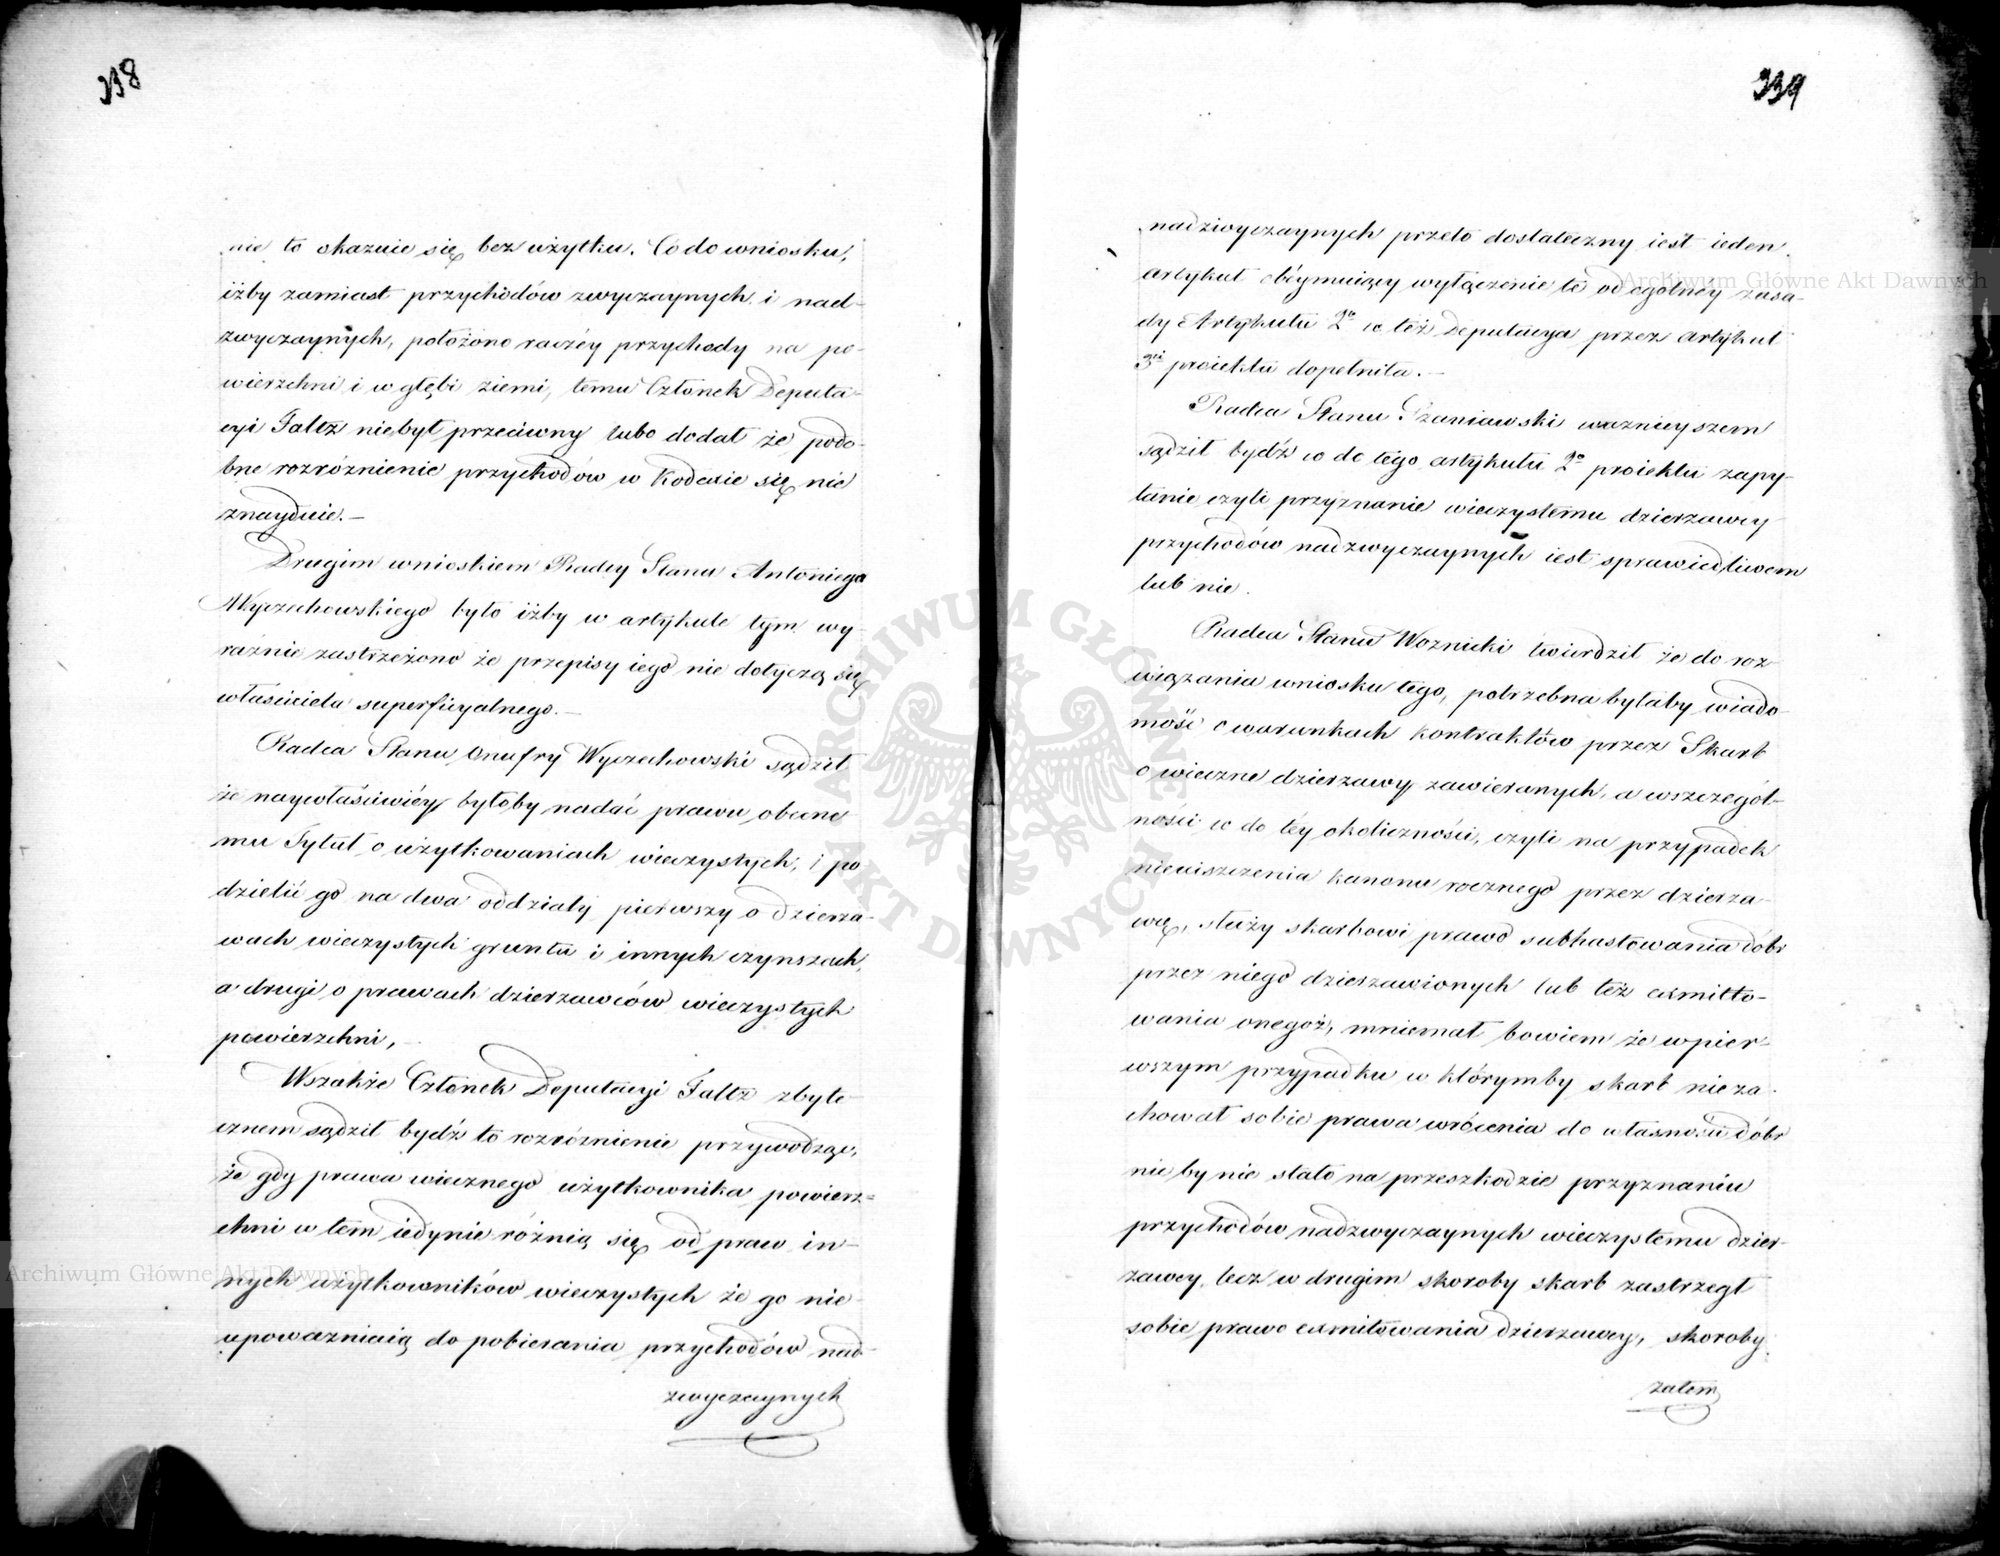 338
nie to okazuie się bez użytku. Co do wniosku,
iżby zamiast przychodów zwyczaynych i nad-
zwyczaynych, położono raczéy przychody na po-
wierzchni i w głębi ziemi, temu Członek Deputa-
cyi Faltz niebył przeciwny lubo dodał że podo-
bne rozróżnienie przychodów w Kodexie się nie
znayduie.—
Drugim wnioskiem Radcy Stanu Antoniego
Wyczechowskiego było iżby w artykule tym wy-
raźnie zastrzeżono że przepisy iego nie dotyczą się
właściciela superficyalnego.—
Radca Stanu Onufry Wyczechowski sądził
że naywłaściwiéy byłoby nadać prawu obecne-
mu Tytuł o użytkowaniach wieczystych, i po
dzielić go na dwa oddziały pierwszy o dzierża-
wach wieczystych gruntu i innych czynszach,
a drugi o prawach dzierżawców wieczystych
powierzchni,
Wszakże Członek Deputacyi Faltz zbyte-
cznem sądził bydź to rozróżnienie przywodząc,
że gdy prawa wiecznego użytkownika powierz=
chni w tem iedynie różnią się od praw in-
nych użytkowników wieczystych że go nie
upoważniaią do pobierania przychodów nad-
zwyczaynych
339
nadzwyczaynych przeto dostateczny iest ieden
artykuł obéymuiący wyłączenie to od ogólnéy zasa-
dy Artykułu 2º co też Deputacya przez artykuł
3ci proiektu dopełniła.—
Radca Stanu Szaniawski ważnieyszem
sądził bydź co do tego artykułu 2º proiektu zapy-
tanie czyli przyznanie wieczystemu dzierżawcy
przychodów nadzwyczaynych iest sprawiedliwem
lub nie.
Radca Stanu Woznicki twierdził że do roz-
wiązania wniosku tego, potrzebna byłaby wiado-
mość o warunkach kontraktów przez Skarb
o wieczne dzierżawy zawieranych, a wszczegól-
ności co do téy okoliczności, czyli na przypadek
nieuiszczenia kanonu rocznego przez dzierża-
wcę, służy skarbowi prawo subhastowania dóbr
przez niego dzierżawionych lub też exmitto-
wania onegoż, mniemał bowiem że wpier-
wszym przypadku w którymby skarb nieza-
chował sobie prawa wrócenia do własności dóbr
nic by nie stało na przeszkodzie przyznaniu
przychodów nadzwyczaynych wieczystemu dzier-
żawcy, lecz w drugim skoroby skarb zastrzegł
sobie prawo exmitowania dzierżawcy, skoroby
zatem
Archiwum Główne Akt Dawnych
Archiwum Główne Akt Dawnych
ARCHIWUM GŁÓWNE AKT DAWNYCH